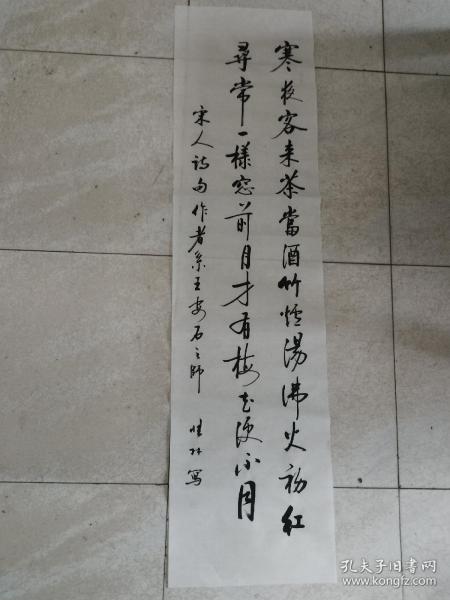 寒夜客来茶當酒竹爐湯沸火初紅
尋常一樣窓前月才有梅花便不同
宋人詩句作者系王安石之師 林寫
孔夫子旧书网
www.kongfz.com